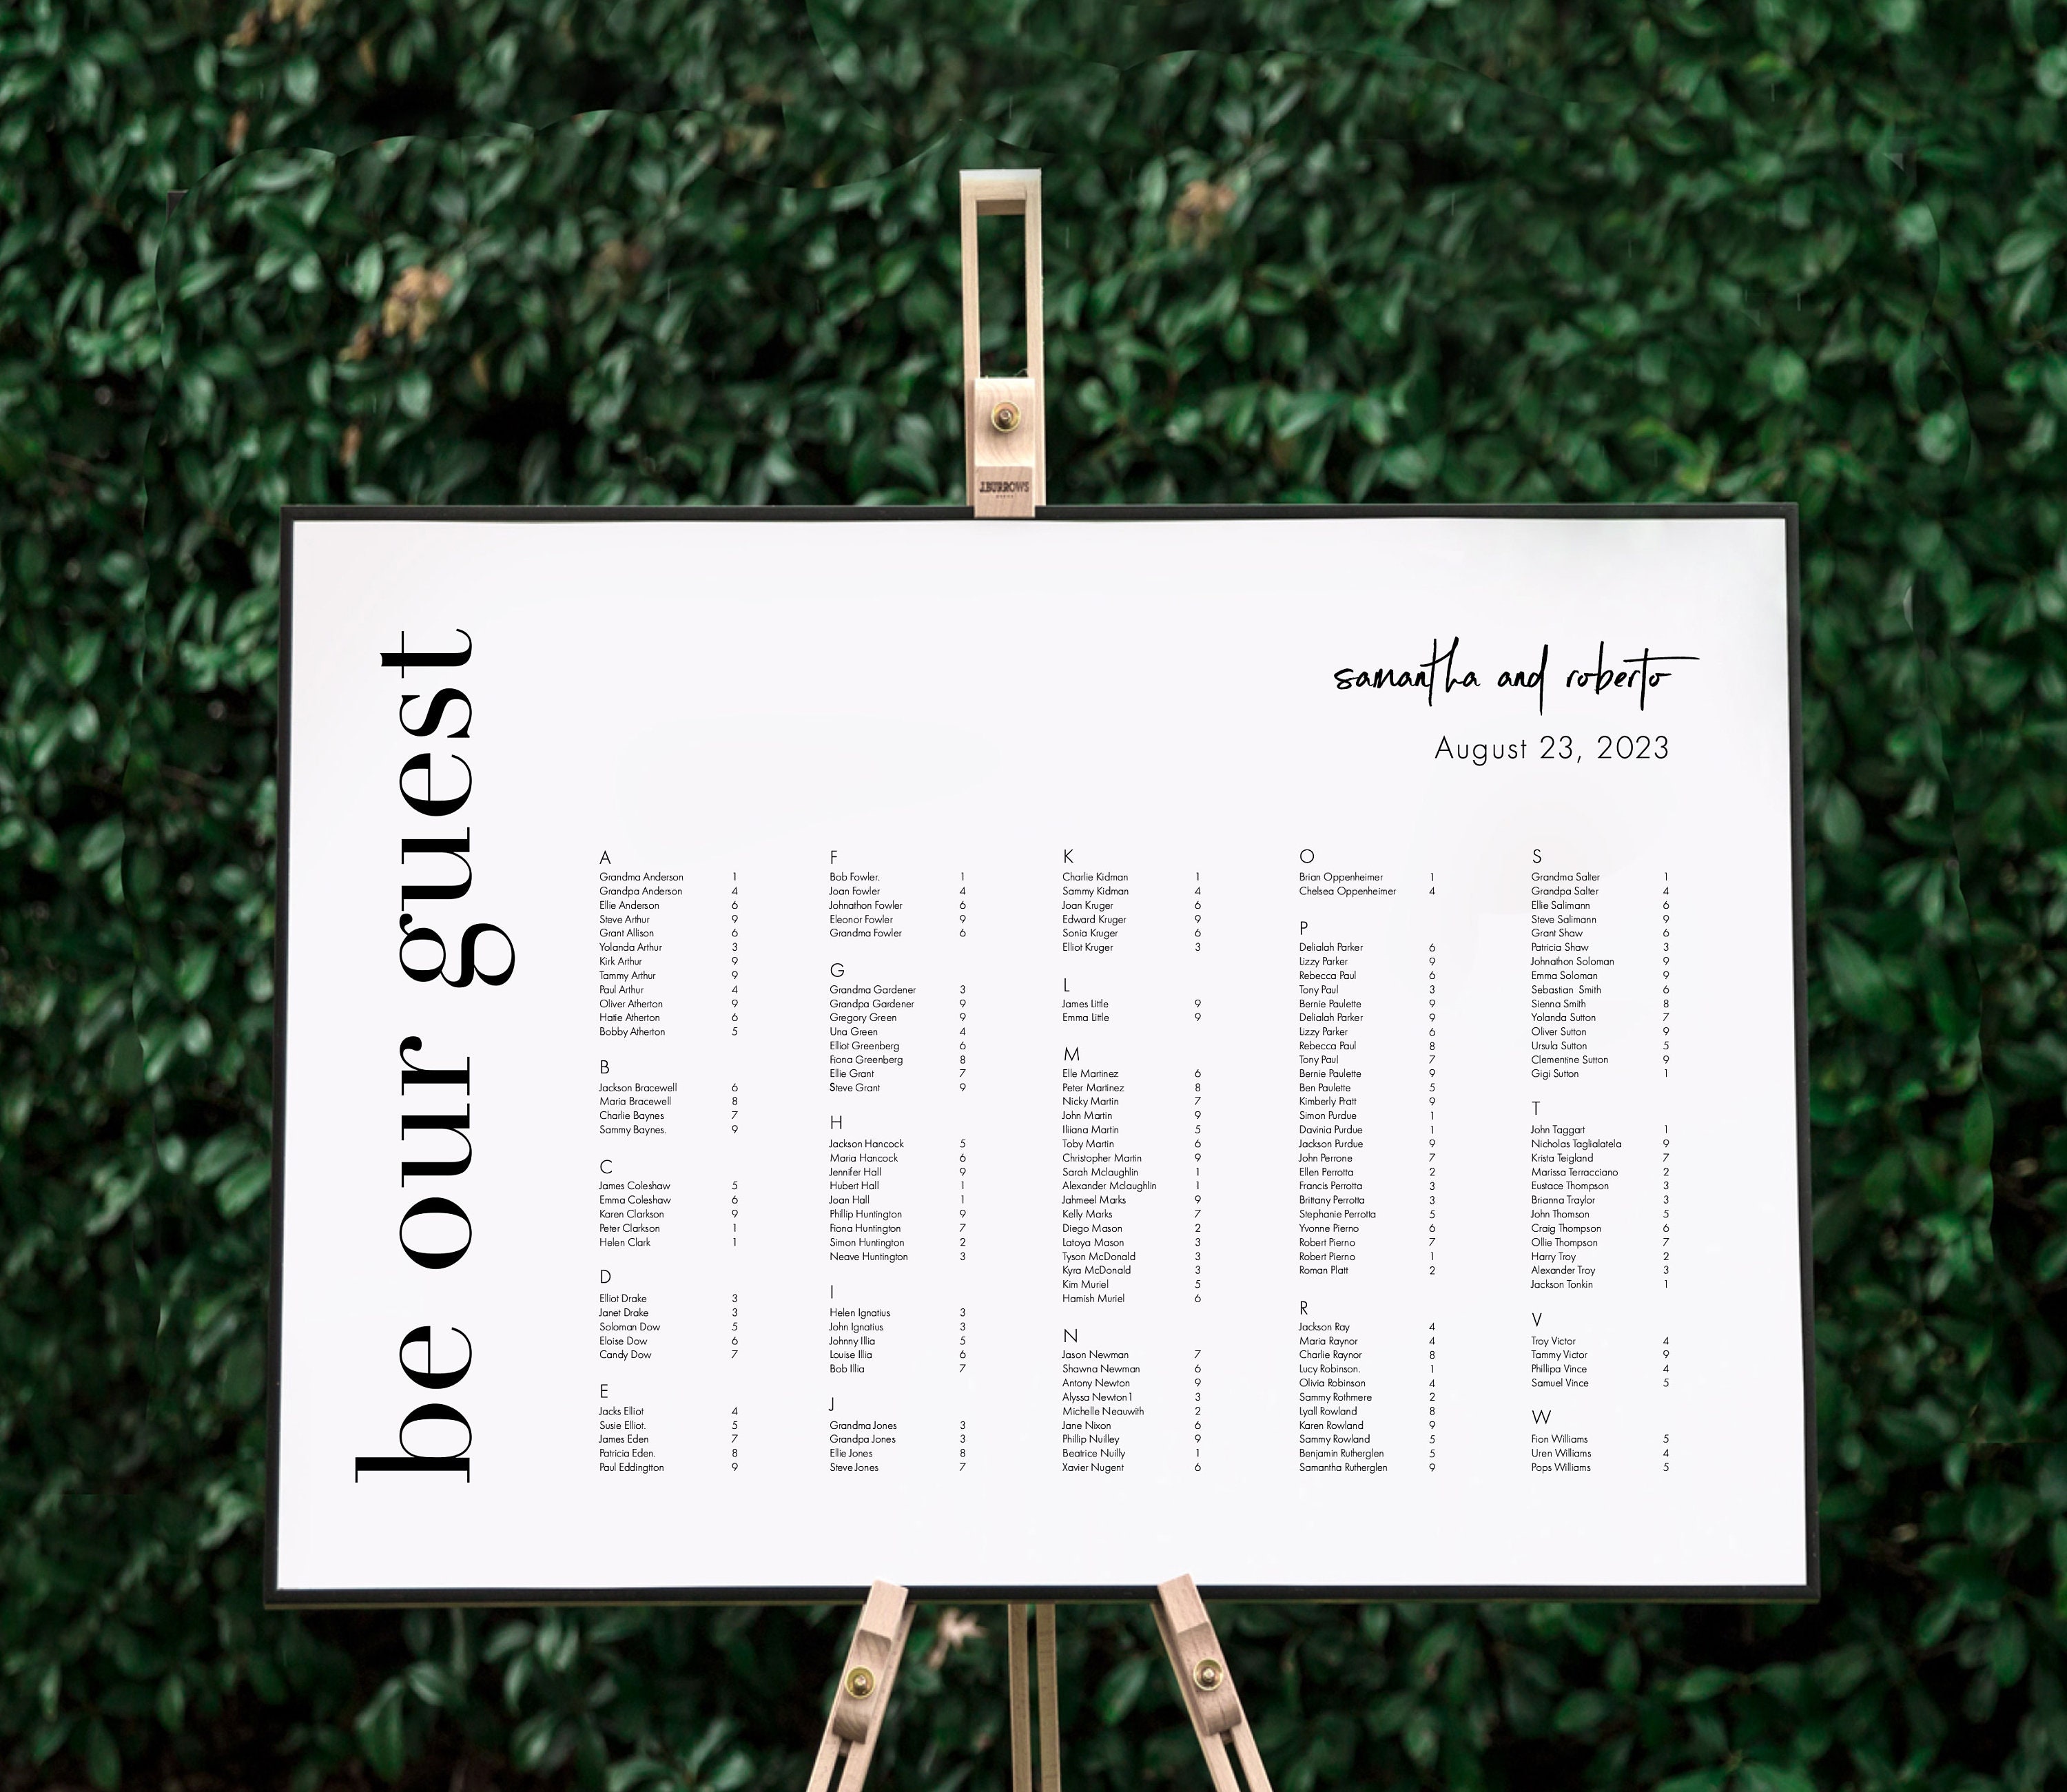 J.BURROWS
be our guest
samantha and roberto
August 23, 2023
A
Grandma Anderson 1
Grandpa Anderson 4
Ellie Anderson 6
Steve Arthur 9
Grant Allison 6
Yolanda Arthur 3
Kirk Arthur 9
Tammy Arthur 9
Paul Arthur 4
Oliver Atherton 9
Hatie Atherton 6
Bobby Atherton 5
B
Jackson Bracewell 6
Maria Bracewell 8
Charlie Baynes 7
Sammy Baynes. 9
C
James Coleshaw 5
Emma Coleshaw 6
Karen Clarkson 9
Peter Clarkson 1
Helen Clark 1
D
Elliot Drake 3
Janet Drake 3
Soloman Dow 5
Eloise Dow 6
Candy Dow 7
E
Jacks Elliot 4
Susie Elliot. 5
James Eden 7
Patricia Eden. 8
Paul Eddingtton 9
F
Bob Fowler. 1
Joan Fowler 4
Johnathon Fowler 6
Eleonor Fowler 9
Grandma Fowler 6
G
Grandma Gardener 3
Grandpa Gardener 9
Gregory Green 9
Una Green 4
Elliot Greenberg 6
Fiona Greenberg 8
Ellie Grant 7
Steve Grant 9
H
Jackson Hancock 5
Maria Hancock 6
Jennifer Hall 9
Hubert Hall 1
Joan Hall 1
Phillip Huntington 9
Fiona Huntington 7
Simon Huntington 2
Neave Huntington 3
I
Helen Ignatius 3
John Ignatius 3
Johnny Illia 5
Louise Illia 6
Bob Illia 7
J
Grandma Jones 3
Grandpa Jones 3
Ellie Jones 8
Steve Jones 7
K
Charlie Kidman 1
Sammy Kidman 4
Joan Kruger 6
Edward Kruger 9
Sonia Kruger 6
Elliot Kruger 3
L
James Little 9
Emma Little 9
M
Elle Martinez 6
Peter Martinez 8
Nicky Martin 7
John Martin 9
Iliiana Martin 5
Toby Martin 6
Christopher Martin 9
Sarah Mclaughlin 1
Alexander Mclaughlin 1
Jahmeel Marks 9
Kelly Marks 7
Diego Mason 2
Latoya Mason 3
Tyson McDonald 3
Kyra McDonald 3
Kim Muriel 5
Hamish Muriel 6
N
Jason Newman 7
Shawna Newman 6
Antony Newton 9
Alyssa Newton1 3
Michelle Neauwith 2
Jane Nixon 6
Phillip Nuilley 9
Beatrice Nuilly 1
Xavier Nugent 6
O
Brian Oppenheimer 1
Chelsea Oppenheimer 4
P
Delialah Parker 6
Lizzy Parker 9
Rebecca Paul 6
Tony Paul 3
Bernie Paulette 9
Delialah Parker 9
Lizzy Parker 6
Rebecca Paul 8
Tony Paul 7
Bernie Paulette 9
Ben Paulette 5
Kimberly Pratt 9
Simon Purdue 1
Davinia Purdue 1
Jackson Purdue 9
John Perrone 7
Ellen Perrotta 2
Francis Perrotta 3
Brittany Perrotta 3
Stephanie Perrotta 5
Yvonne Pierno 6
Robert Pierno 7
Robert Pierno 1
Roman Platt 2
R
Jackson Ray 4
Maria Raynor 4
Charlie Raynor 8
Lucy Robinson. 1
Olivia Robinson 4
Sammy Rothmere 2
Lyall Rowland 8
Karen Rowland 9
Sammy Rowland 5
Benjamin Rutherglen 5
Samantha Rutherglen 9
S
Grandma Salter 1
Grandpa Salter 4
Ellie Salimann 6
Steve Salimann 9
Grant Shaw 6
Patricia Shaw 3
Johnathon Soloman 9
Emma Soloman 9
Sebastian Smith 6
Sienna Smith 8
Yolanda Sutton 7
Oliver Sutton 9
Ursula Sutton 5
Clementine Sutton 9
Gigi Sutton 1
T
John Taggart 1
Nicholas Taglialatela 9
Krista Teigland 7
Marissa Terracciano 2
Eustace Thompson 3
Brianna Traylor 3
John Thomson 5
Craig Thompson 6
Ollie Thompson 7
Harry Troy 2
Alexander Troy 3
Jackson Tonkin 1
V
Troy Victor 4
Tammy Victor 9
Phillipa Vince 4
Samuel Vince 5
W
Fion Williams 5
Uren Williams 4
Pops Williams 5